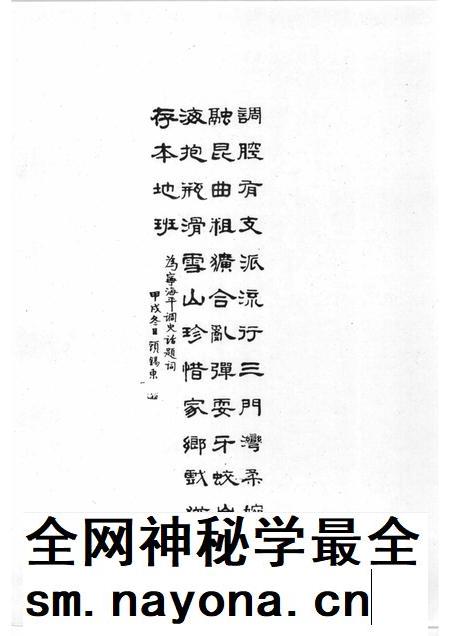 調腔有支派流行三門灣柔
融昆曲粗獷合亂彈耍牙蛟
海抱瓶滑雪山珍惜家鄉戲
存本地班
為寧海平調史話題詞
甲戌冬日 顧錫東
全网神秘学最全
sm.nayona.cn